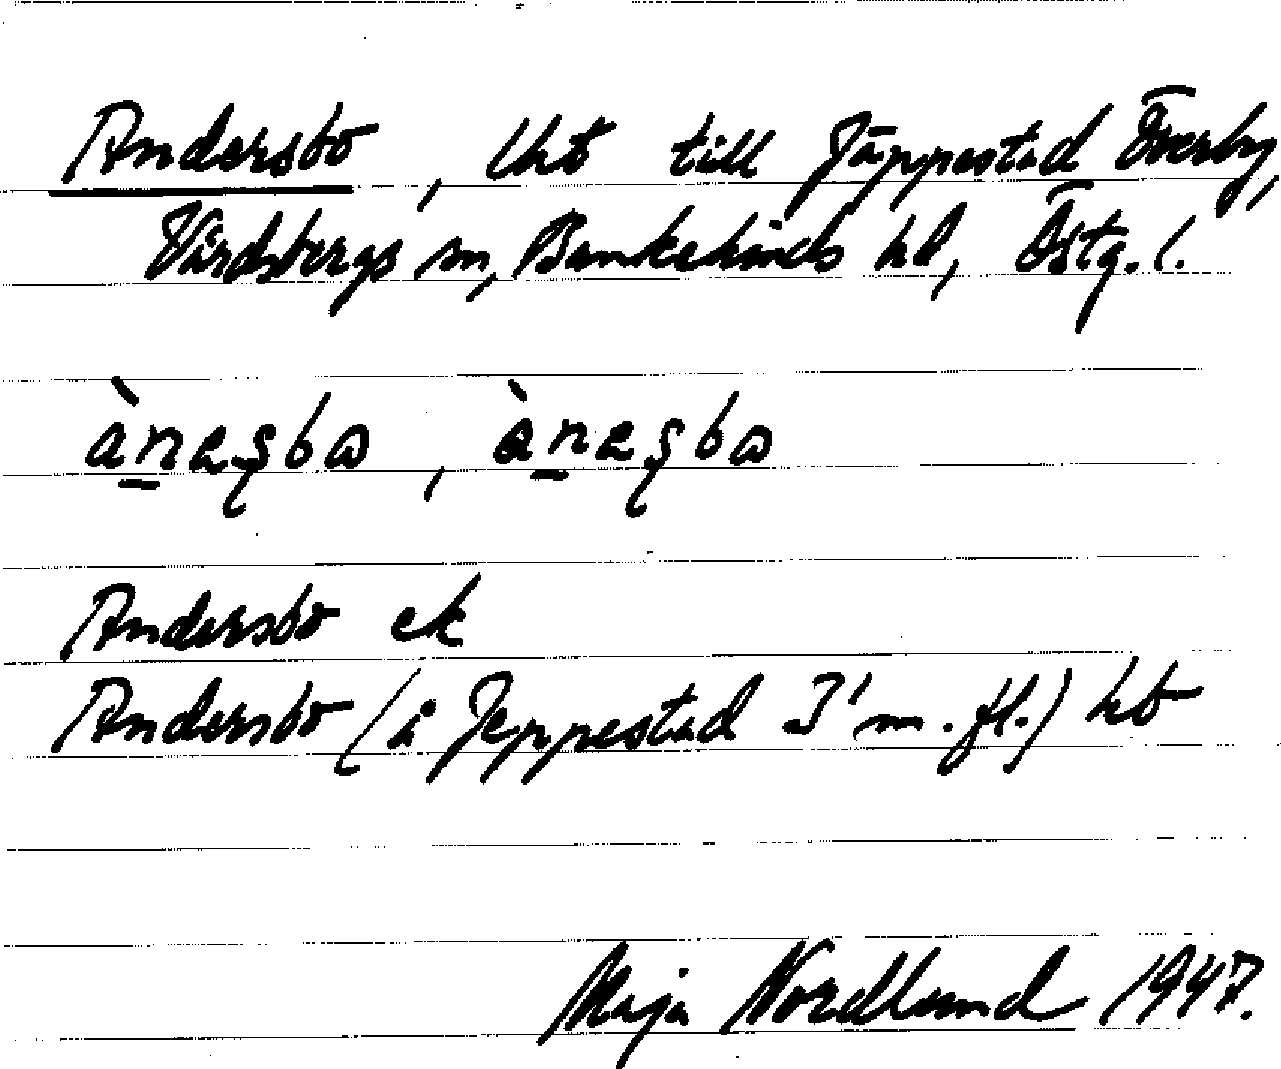 Andersbo, lht till Jäppestad Överby,
Vårdsbergs sn, Bankekinds hd, Östg. l.
ànaʂbɷ, ànaʂbɷ
Andersbo ek
Andersbo (å Jeppestad I' m. fl.) hb
Maja Nordlund 1947.